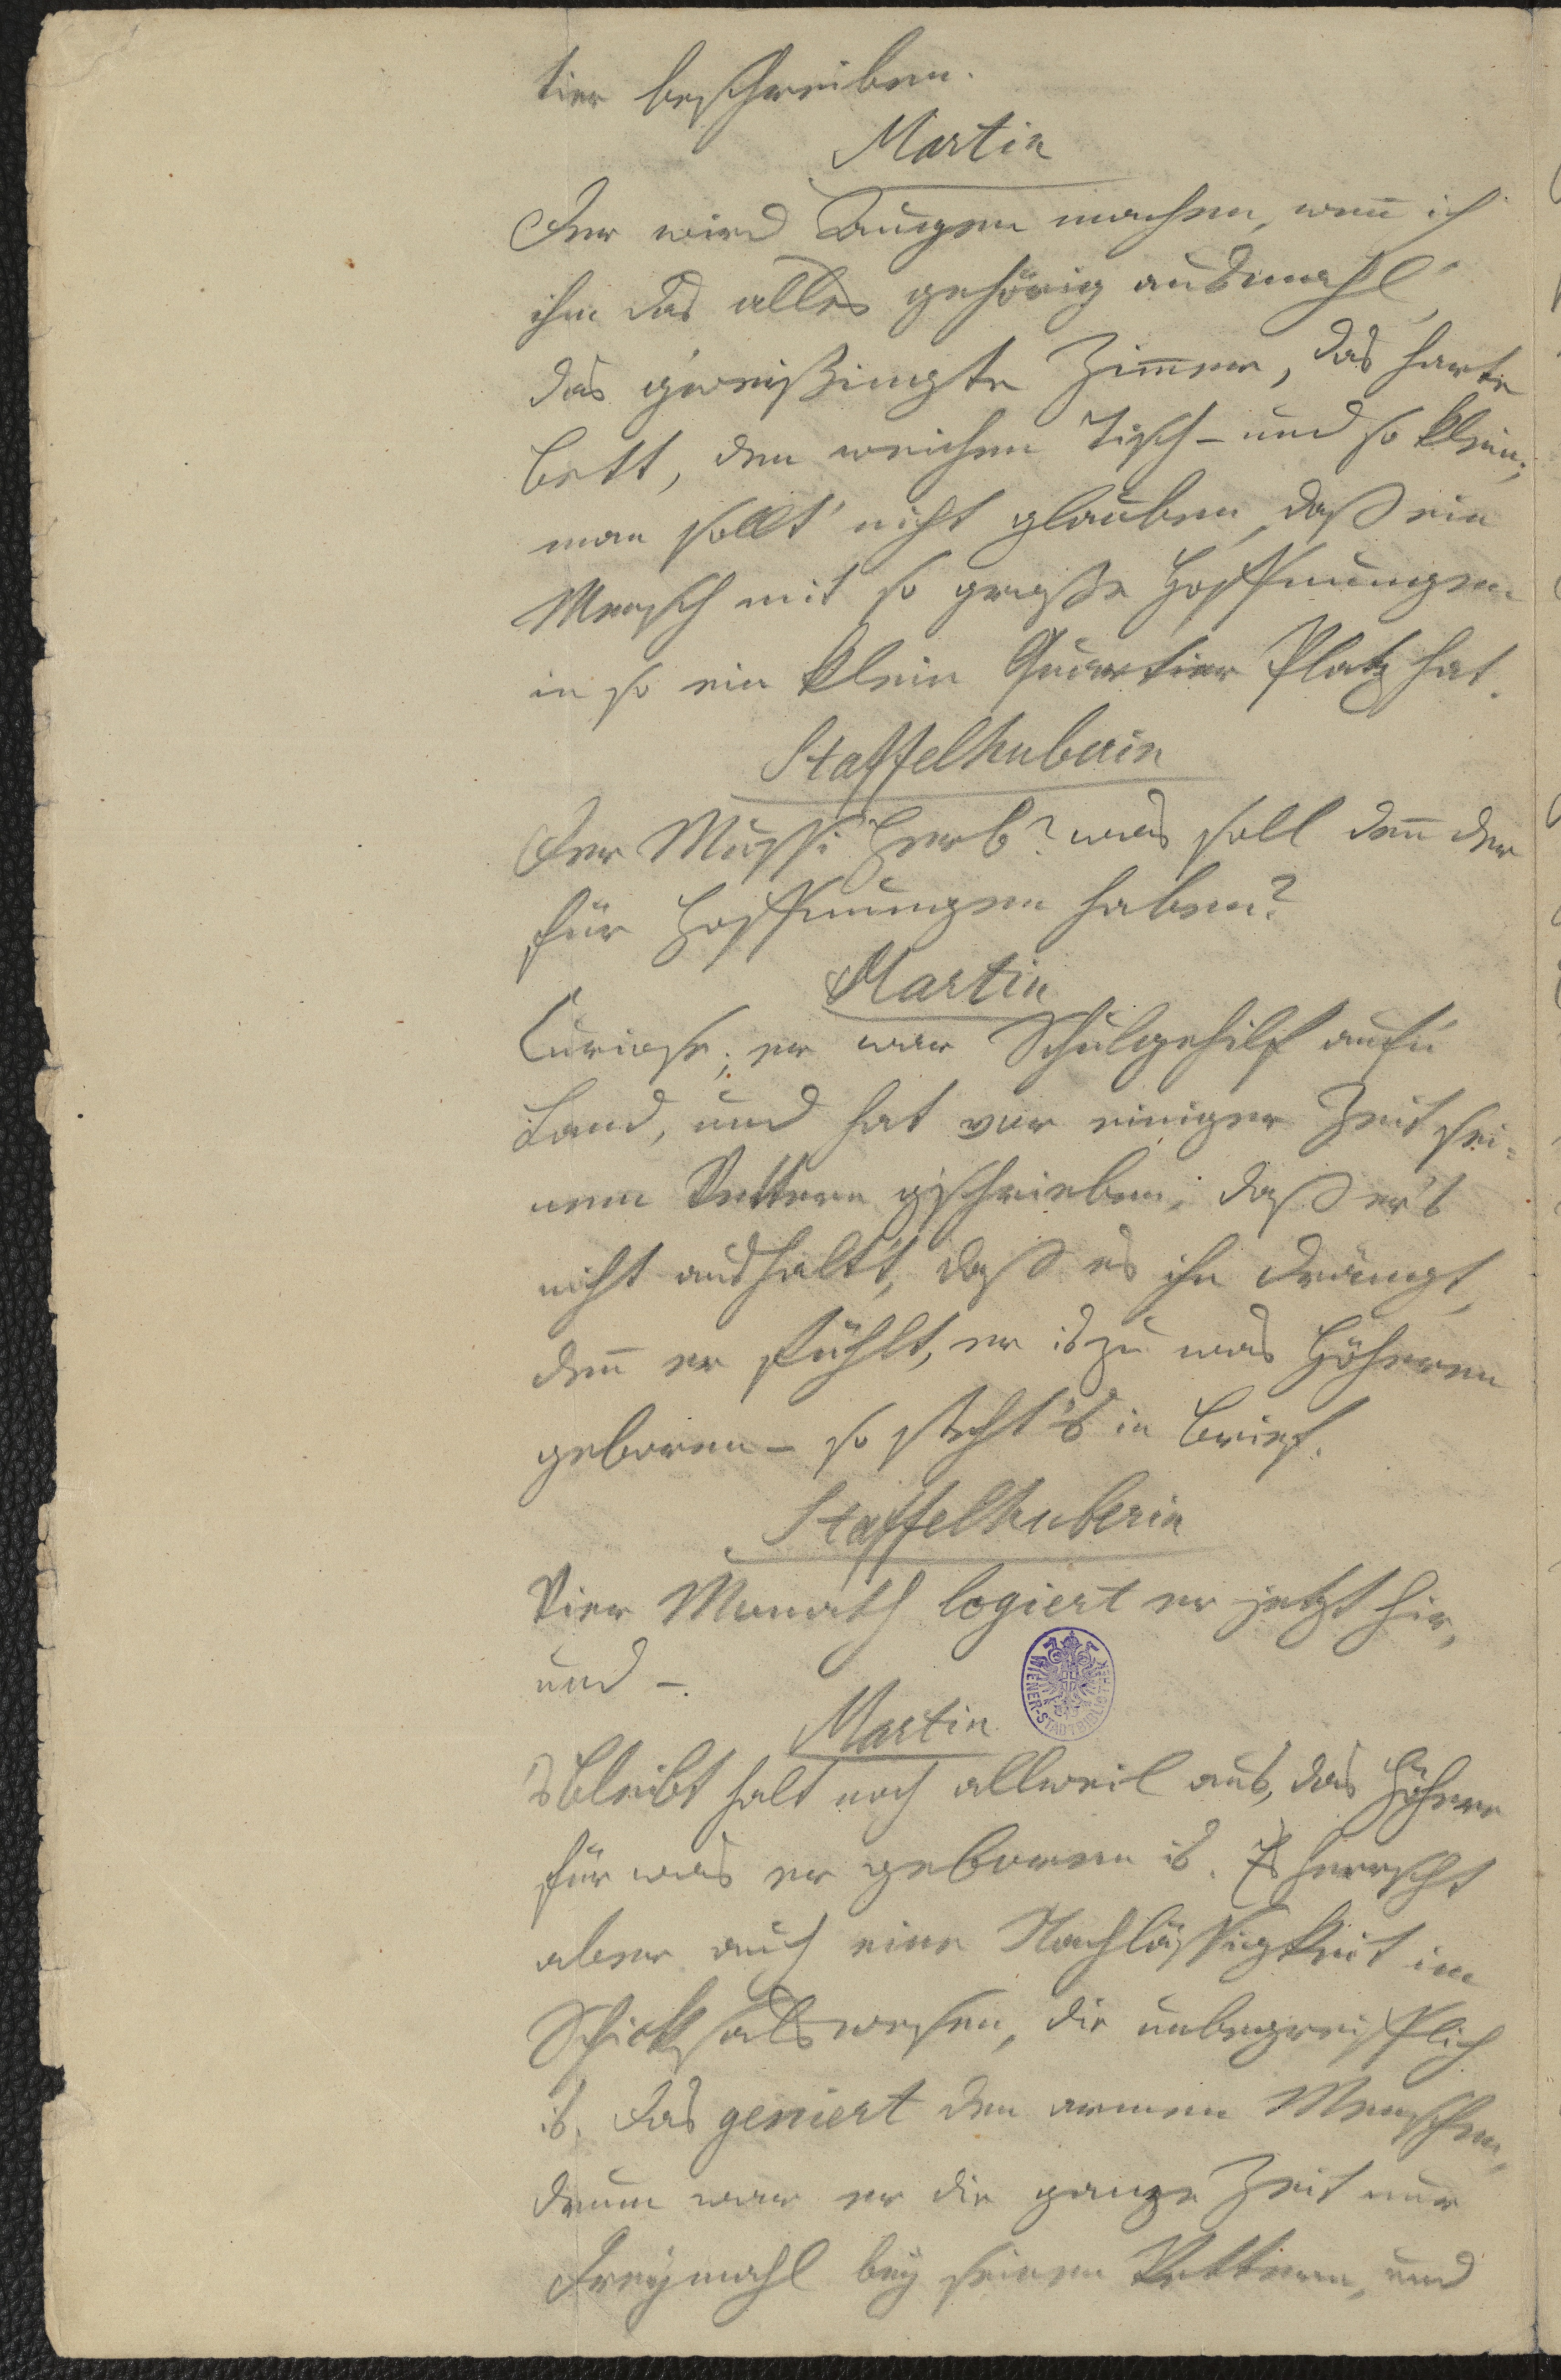 tier beschreiben.
Martin
Der wird Augen machen, weñ ich
ihm das alles gehörig ausmahl',
das g'weißingte Zim̄er, das harte
Bett, den weichen Tisch – und so klein;
man sollt' nicht glauben, daß ein
Mensch mit so große Hoffnungen
in so ein klein Quartier Platz hat.
Staffelhuberin
Der Mussi Herb? was soll deñ der
für Hoffnungen haben?
Martin
Curiose; er war Schulgehilf auf'n
Land, und hat vor einiger Zeit sei=
nem Vettern g'schrieben, daß er's
nicht aushalt't, daß es ihn drängt,
deñ er fühlt, er is zu was Höheren
geboren – so steht's in Brief.
Staffelhuberin
Vier Monath logiert er jetzt hier,
und –.
WIENER-STADTBIBLIOTHEK
Martin
's bleibt halt noch allweil aus, das Höhere
für was er geboren is. Es herrscht
aber auch eine Nachlässigkeit im
Schicksalswesen, die unbegreiflich
is. Das geniert den armen Menschen,
drum war er die ganze Zeit nur
dreymahl bey seinen Vettern, und